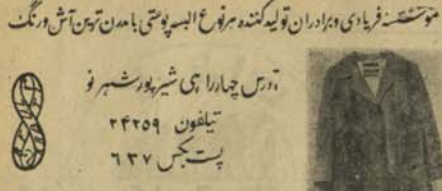 موسسه فریادی و برادران تولید کننده هر نوع البسه پوستی با مدرن ترین آش و رنگ
آدرس چهارراهی شیرپور شهر نو
تیلفون ۲۴۲۵۹
پست بکس ۶۳۷